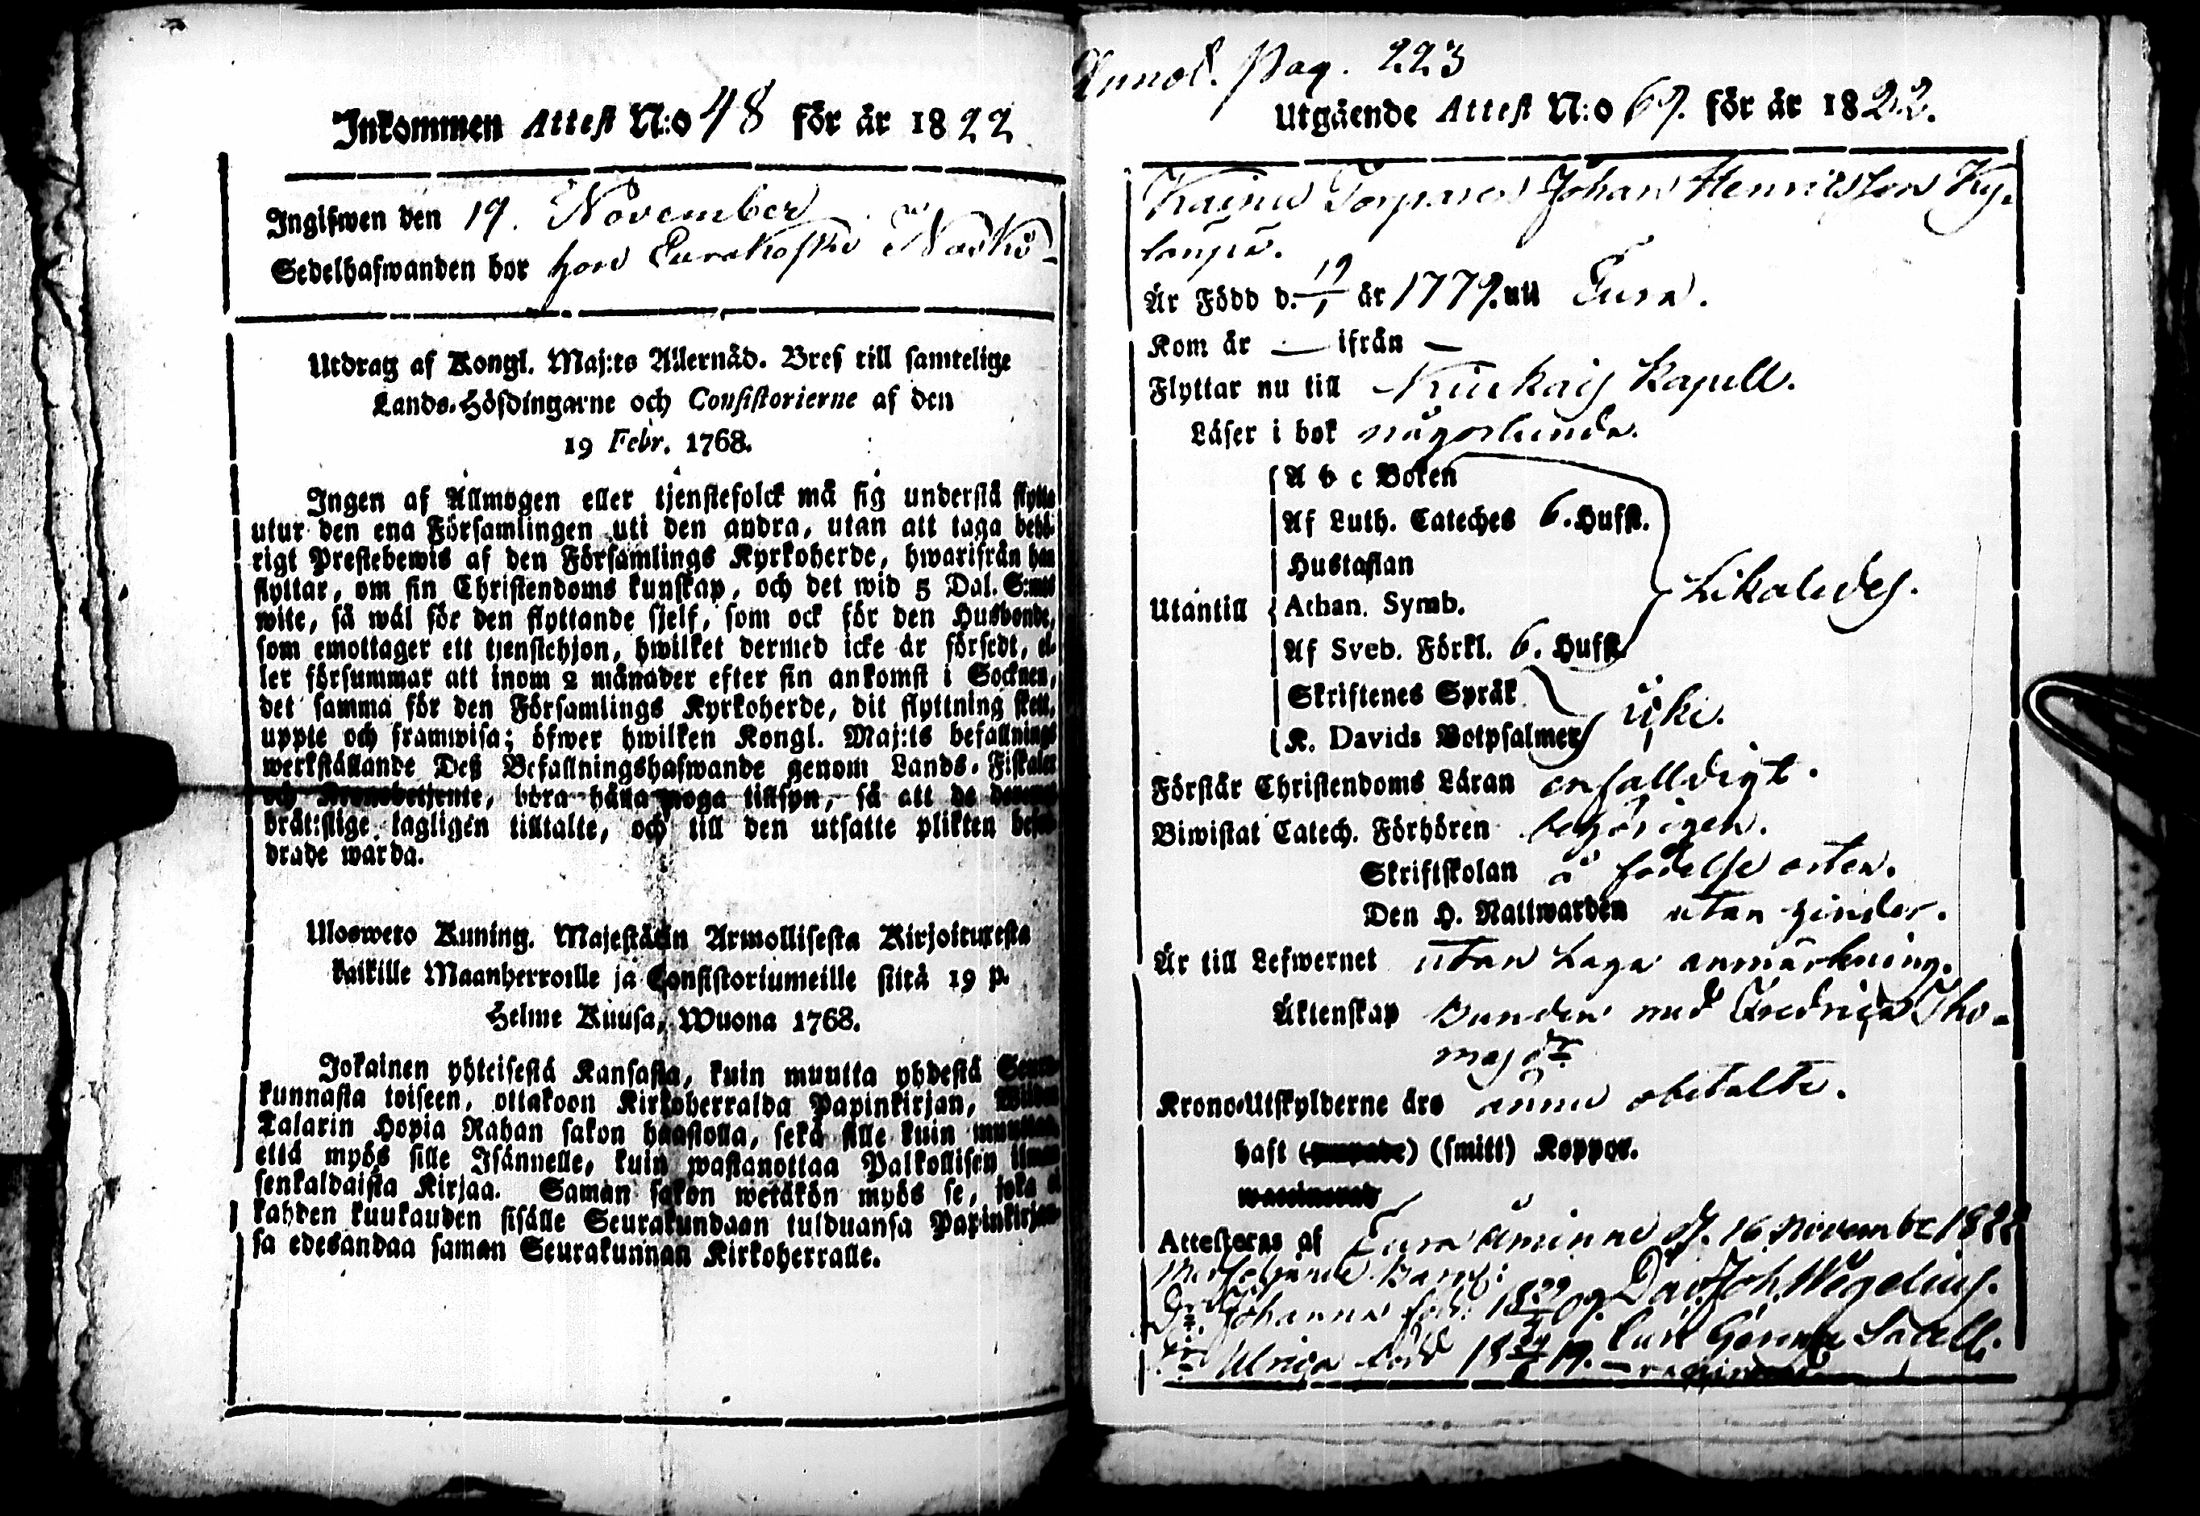 Inkommen Attest N:o 48 för år 1822
Ingifwen den 19. November
Sedelhafwanden bor hos Eurakoski Nask
Utdrag af Kongl. Maj:ts Allernåd. Bref till samtelige
Lands-Höfdingarne och Consistorierne af den
19 Febr. 1768.
Ingen af Allmogen eller tjenstefolck må sig understå flytta
utur den ena Församlingen uti den andra, utan att taga behö-
rigt Prestebewis af den Församlings Kyrkoherde, hwarifrån han
flyttar, om sin Christendoms kunskap, och det wid 5 Dal. S:mts
wite, så wäl för den flyttande sjelf, som ock för den Husbonde,
som emottager ett tjenstehjon, hwilket dermed icke är försedt, el-
ler försummar att inom 2 månader efter sin ankomst i Socknen,
det samma för den Församlings Kyrkoherde, dit flyttning skett,
uppte och framwisa; öfwer hwilken Kongl. Maj:ts befallnings
werkställande Deß Befallningshafwande genom Lands-Fiskaler
och Kronobetjente, böra hålla noga tillsyn, så att de
bråtslige lagligen tilltalte, och till den utsatte plikten befor-
drade warda.
Ulosweto Kuning. Majestätin Armollisesta Kirjoituxesta
kaikille Maanherroille ja Consistoriumeille siitä 19 p.
Helme Kuusa, Wuona 1768.
Jokainen yhteisestä Kansasta, kuin muutta yhdestä Seura-
kunnasta toiseen, ottakoon Kirkoherralda Papinkirjan, Wiiden
Talarin Hopia Rahan sakon haastolla, sekä sille kuin muuttaa,
että myös sille Isännelle, kuin wastanottaa Palkollisen ilman
senkaldaista Kirjaa. Saman sakon wetäkön myös se, joka ei
kahden kuukauden sisälle Seurakundaan tulduansa Papinkirjan-
sa edesandaa saman Seurakunnan Kirkoherralle.
Annot. Pag. 223
Utgående Attest N:o 69. för år 1822.
Torparen Johan Henricsson Ky-
Är Född d. 19/1 år 1779. uti Eura.
Kom år — ifrån —
Flyttar nu till Kiukais Kapell.
Läser i bok någorlunda.
A b c Boken
Af Luth. Cateches 6. Hufst.
Hustaflan
Utantill Athan. Symb. Likaledes.
Af Sveb. Förkl. 6. Hufst.
Skriftenes Språk
K. Davids Botpsalmer icke.
Förstår Christendoms Läran enfalldigt.
Biwistat Catech. Förhören behörigen.
Skriftskolan å födelse orten.
Den H. Nattwarden utan hinder.
Är till Lefwernet utan Laga anmärkning.
Äktenskap Bunden med Fredrica Tho-
mas dr
Krono-Utskylderne äro ännu obetalte.
haft (smitt) Koppor.
Attesteras af Euraåminne d. 16 November 1822
Medföljande Barn:
Dr. Johanna föd. 18 09. Dav. Joh. Wegelius.
Dr Ulrica född 18 19.